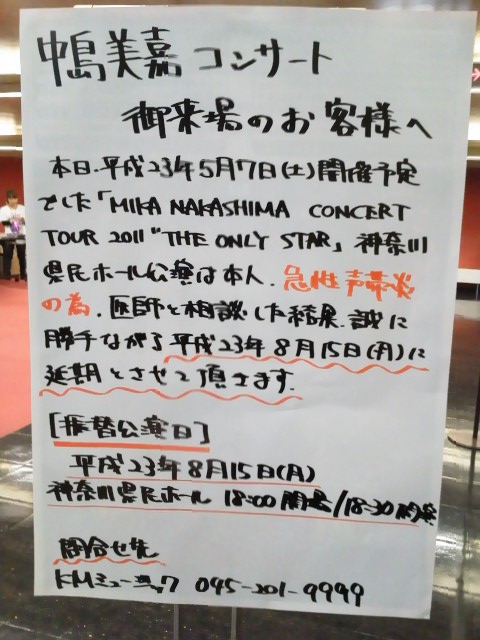 中島美嘉コンサート
御来場のお客様へ
本日、平成23年5月7日(土)開催予定
でした「MIKA NAKASHIMA CONCERT
TOUR 2011 "THE ONLY STAR」神奈川
県民ホール公演は本人、急性声帯炎
の為、医師と相談した結果、誠に
勝手ながら平成23年8月15日(月)に
延期とさせて頂きます。
[振替公演日]
平成23年8月15日(月)
神奈川県民ホール 18:00開場/18:30開演
問合せ先
KMミュージック 045-201-9999